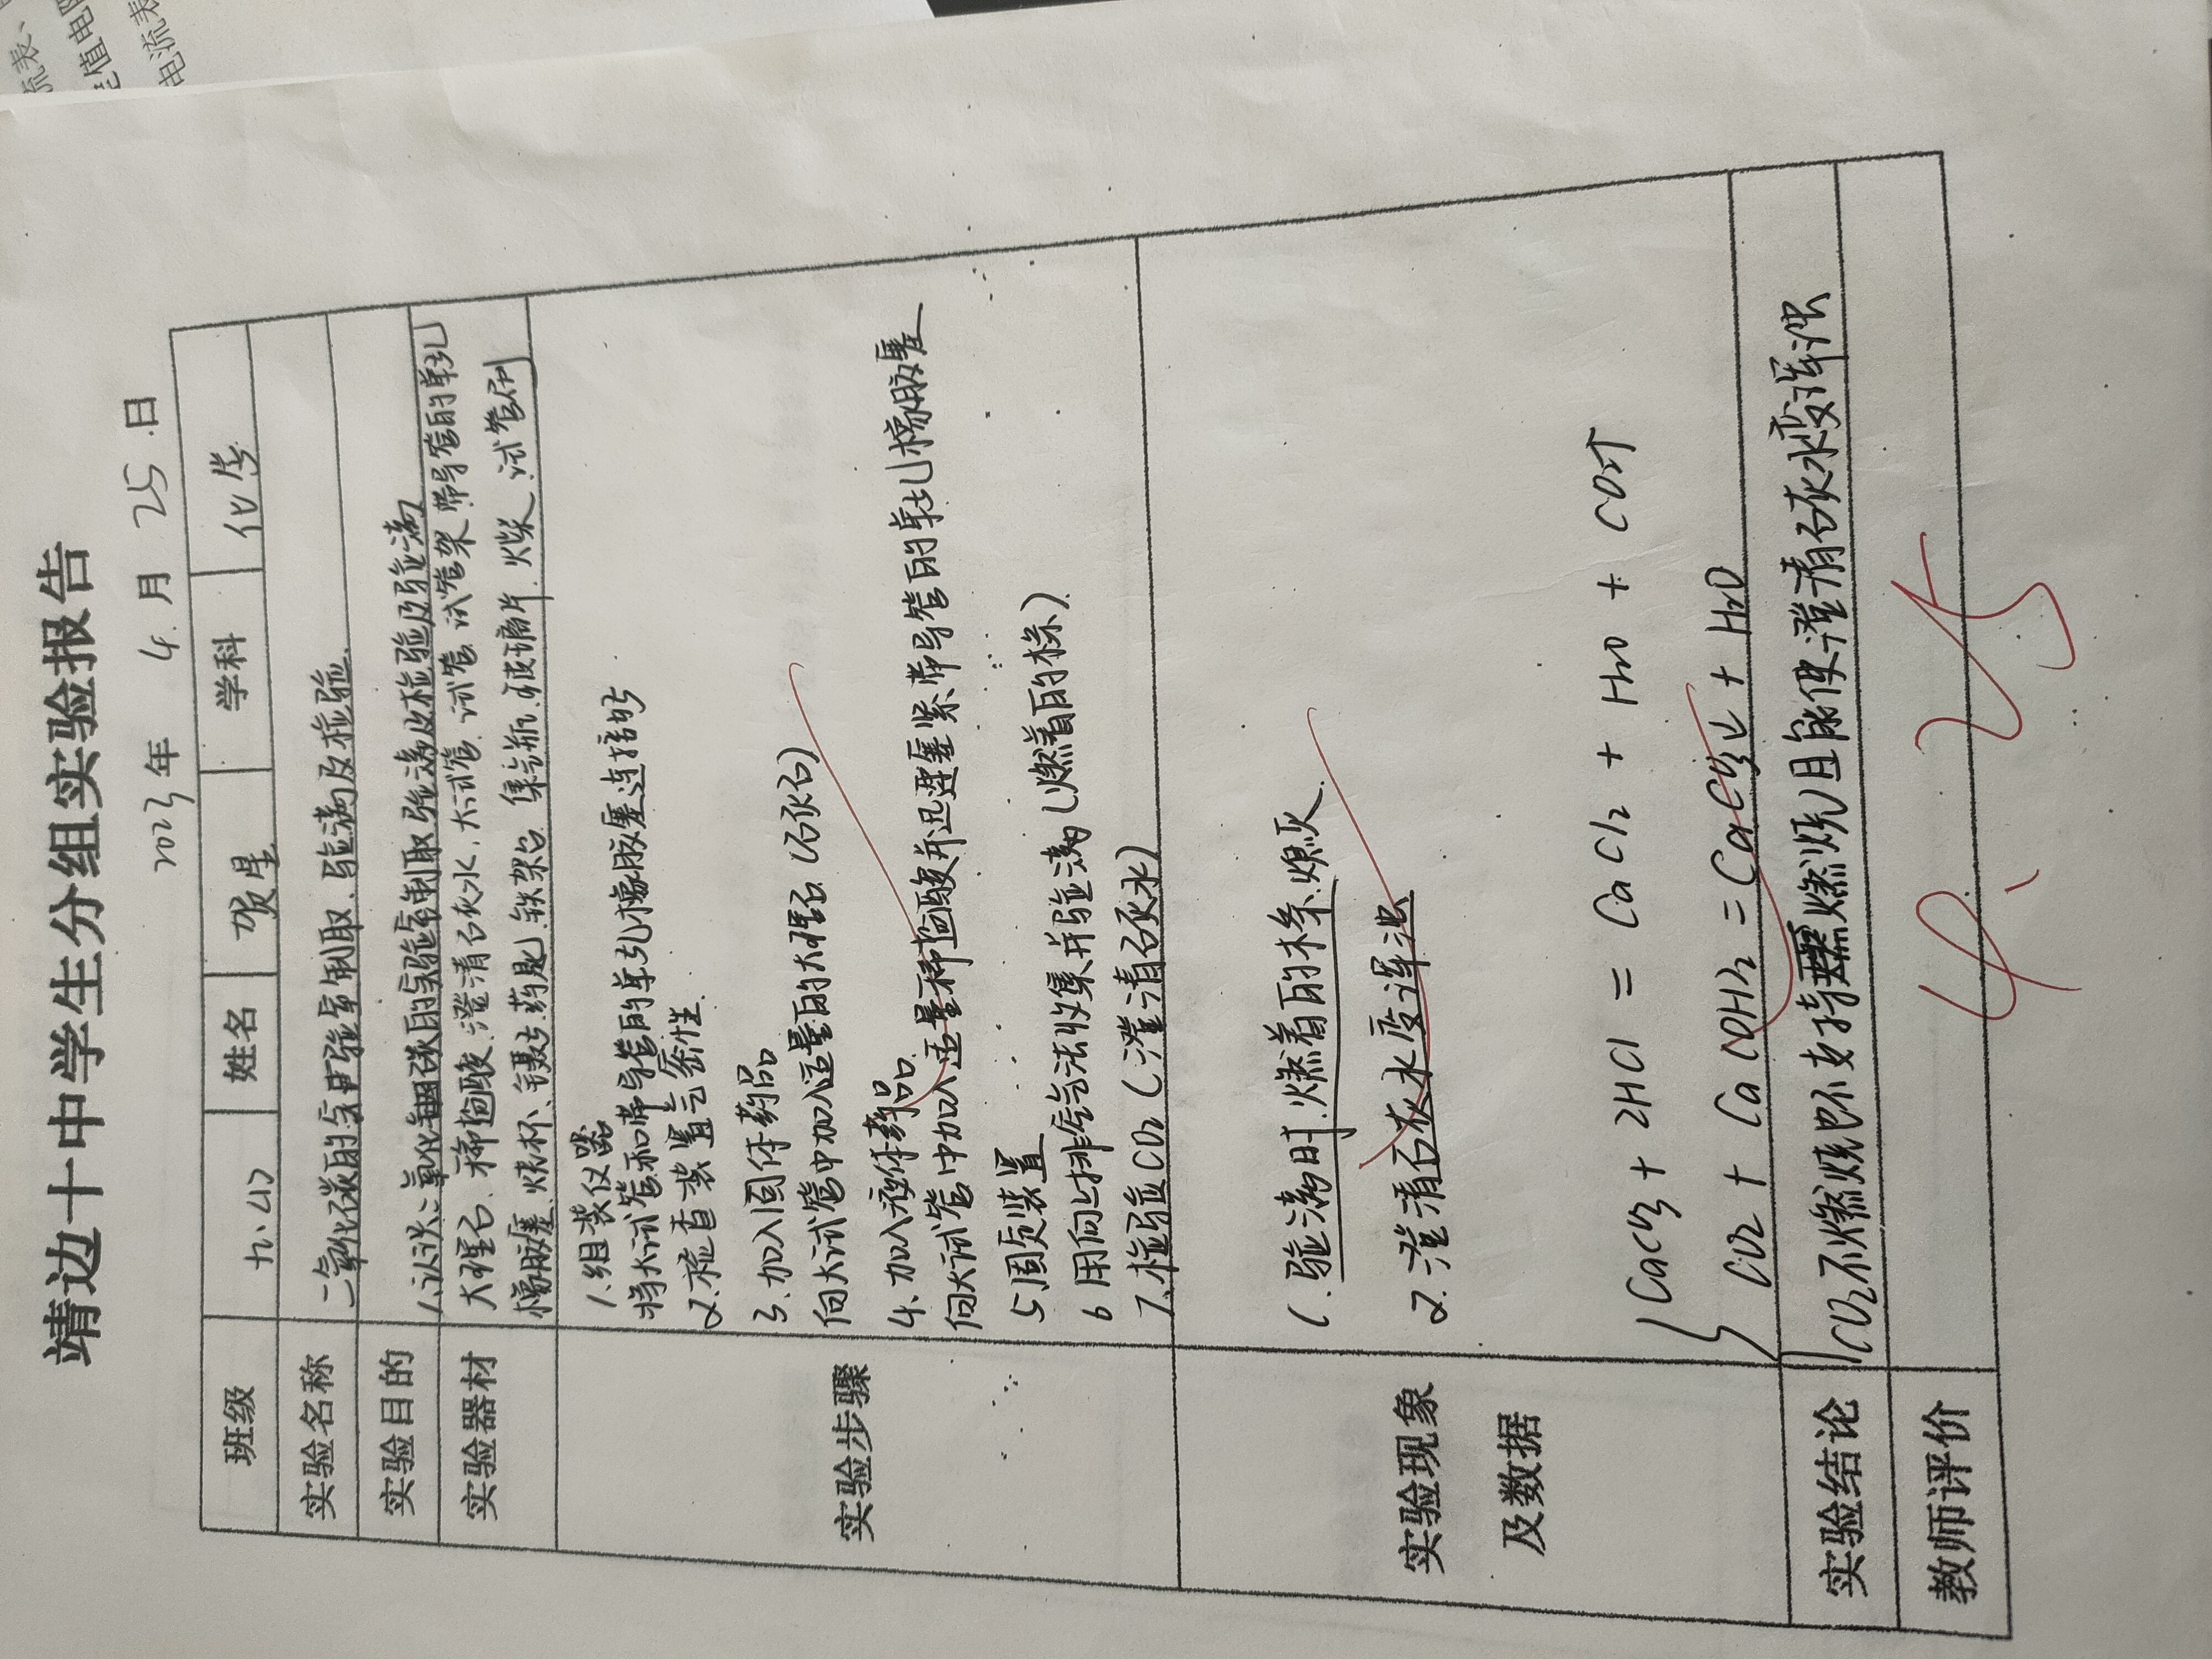 靖边十中学生分组实验报告
2023年 4.月 25.日
班级 九.(1) 姓名 贺星 学科 化学
实验名称 二氧化碳的实验室制取、验满及检验.
实验目的 1.认识二氧化碳的实验室制取验满及检验及验满
实验器材 大理石、稀盐酸、澄清石灰水,大试管、试管、试管架、带导管的单孔
橡胶塞、烧杯、镊子、药匙、铁架台、集气瓶、玻璃片、火柴、试管刷
实验步骤
1.组装仪器
将大试管和带导管的单孔橡胶塞连接好
2.检查装置气密性.
3.加入固体药品
向大试管中加入适量的大理石(石灰石)
4.加入液体药品
向大试管中加入适量稀盐酸并迅速塞紧带导管的单孔橡胶塞
5.固定装置
6用向上排空气法收集并验满(燃着的木条)
7.检验CO2(澄清石灰水)
实验现象
及数据
1.验满时.燃着的木条.熄灭.
2.澄清石灰水变浑浊
CaCO3 + 2HCl = CaCl2 + H2O + CO2↑
CO2 + Ca(OH)2 = CaCO3↓ + H2O
实验结论 CO2不燃烧也不支持燃烧且能使澄清石灰水变浑浊
教师评价
流表、
电流表